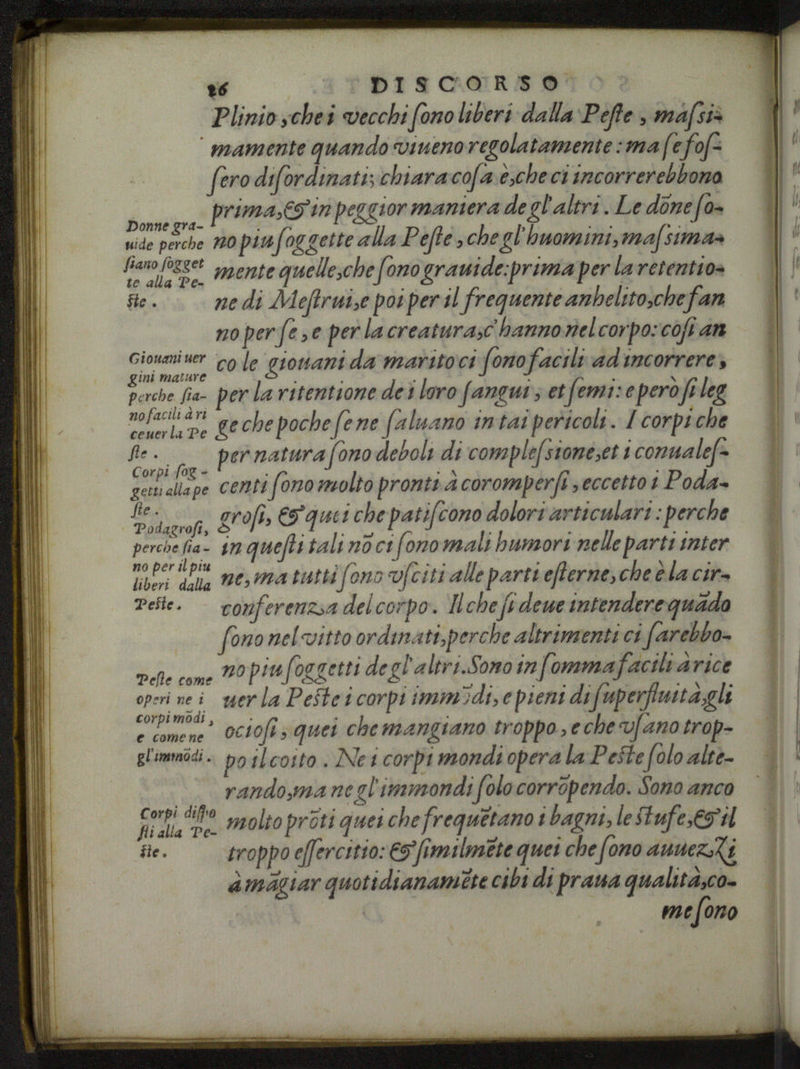 16 DISCORSO
Plinio, che i vecchi ſono liberi dalla Peſte, maſsi-
mamente quando viueno regolatamente: ma ſe foſ-
ſero diſordinati; chiara coſa è, che ci incorrerebbono
prima, & in peggior maniera de gl'altri. Le dōne ſo-
no piu ſoggette alla Peſte, che gl'huomini, maſsima-
mente quelle, che ſono grauide: prima per la retentio-
ne di Meſtrui, e poi per il frequente anhelito, che fan
no per ſe, e per la creatura, c'hanno nel corpo: coſi an
co le giouani da marito ci ſono facili ad incorrere,
per la ritentione de i loro ſangui, et ſemi: e però ſi leg
ge che poche ſe ne ſaluano in tai pericoli. I corpi che
per natura ſono deboli di compleſsione, et i conualeſ-
centi ſono molto pronti à coromperſi, eccetto i Poda-
groſi, & quei che patiſcono dolori articulari: perche
in queſti tali nō ci ſono mali humori nelle parti inter
ne, ma tutti ſono vſciti alle parti eſterne, che è la cir-
conferenza del corpo. Il che ſi deue intendere quādo
ſono nel vitto ordinati, perche altrimenti ci ſarebbo-
no piu ſoggetti de gl'altri. Sono in ſomma facili à rice
uer la Peſte i corpi immōdi, e pieni di ſuperfluità, gli
ocioſi, quei che mangiano troppo, e che vſano trop-
po il coito. Ne i corpi mondi opera la Peſte ſolo alte-
rando, ma ne gl'immondi ſolo corrōpendo. Sono anco
molto prōti quei che frequētano i bagni, le ſtufe, & il
troppo eſſercitio: & ſimilmēte quei che ſono auuezzi
à māgiar quotidianamēte cibi di praua qualità, co-
me ſono
Donne gra-
uide perche
ſiano ſogget
te alla Pe-
ſte.
Giouani uer
gini mature
perche ſia-
no facili à ri
ceuer la Pe
ſte.
Corpi ſog-
getti alla pe
ſte.
Podagroſi,
perche ſia-
no per il piu
liberi dalla
Peſte.
Peſte come
operi ne i
corpi mōdi,
e come ne
gl'immōdi.
Corpi diſpo
ſti alla Pe-
ſte.